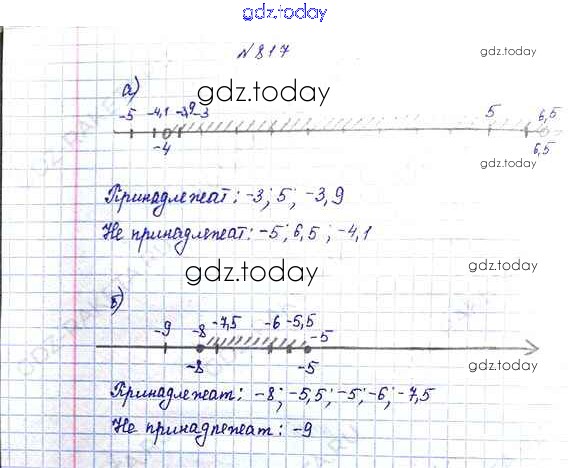 gdz.today
№ 817
gdz.today
а)
gdz.today
-5 -4,1 -3,9 -3 5 6,5
-4 6,5
gdz.today
Принадлежат: -3; 5; -3,9
Не принадлежат: -5; 6,5; -4,1
gdz.today
gdz.today
б)
-9 -8 -7,5 -6 -5,5 -5
-8 -5
gdz.today
Принадлежат: -8; -5,5; -5; -6; -7,5
Не принадлежат: -9
gdz.today